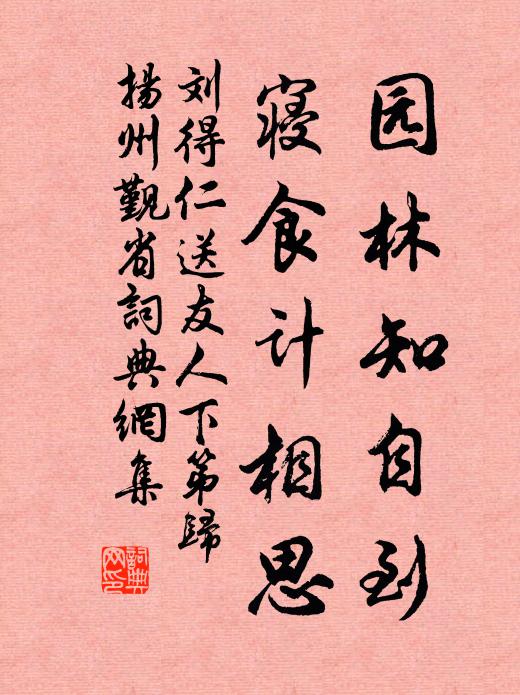 园林知自到
寝食计相思
刘得仁送友人下第歸
揚州觐省詞典網集
詞典
网印